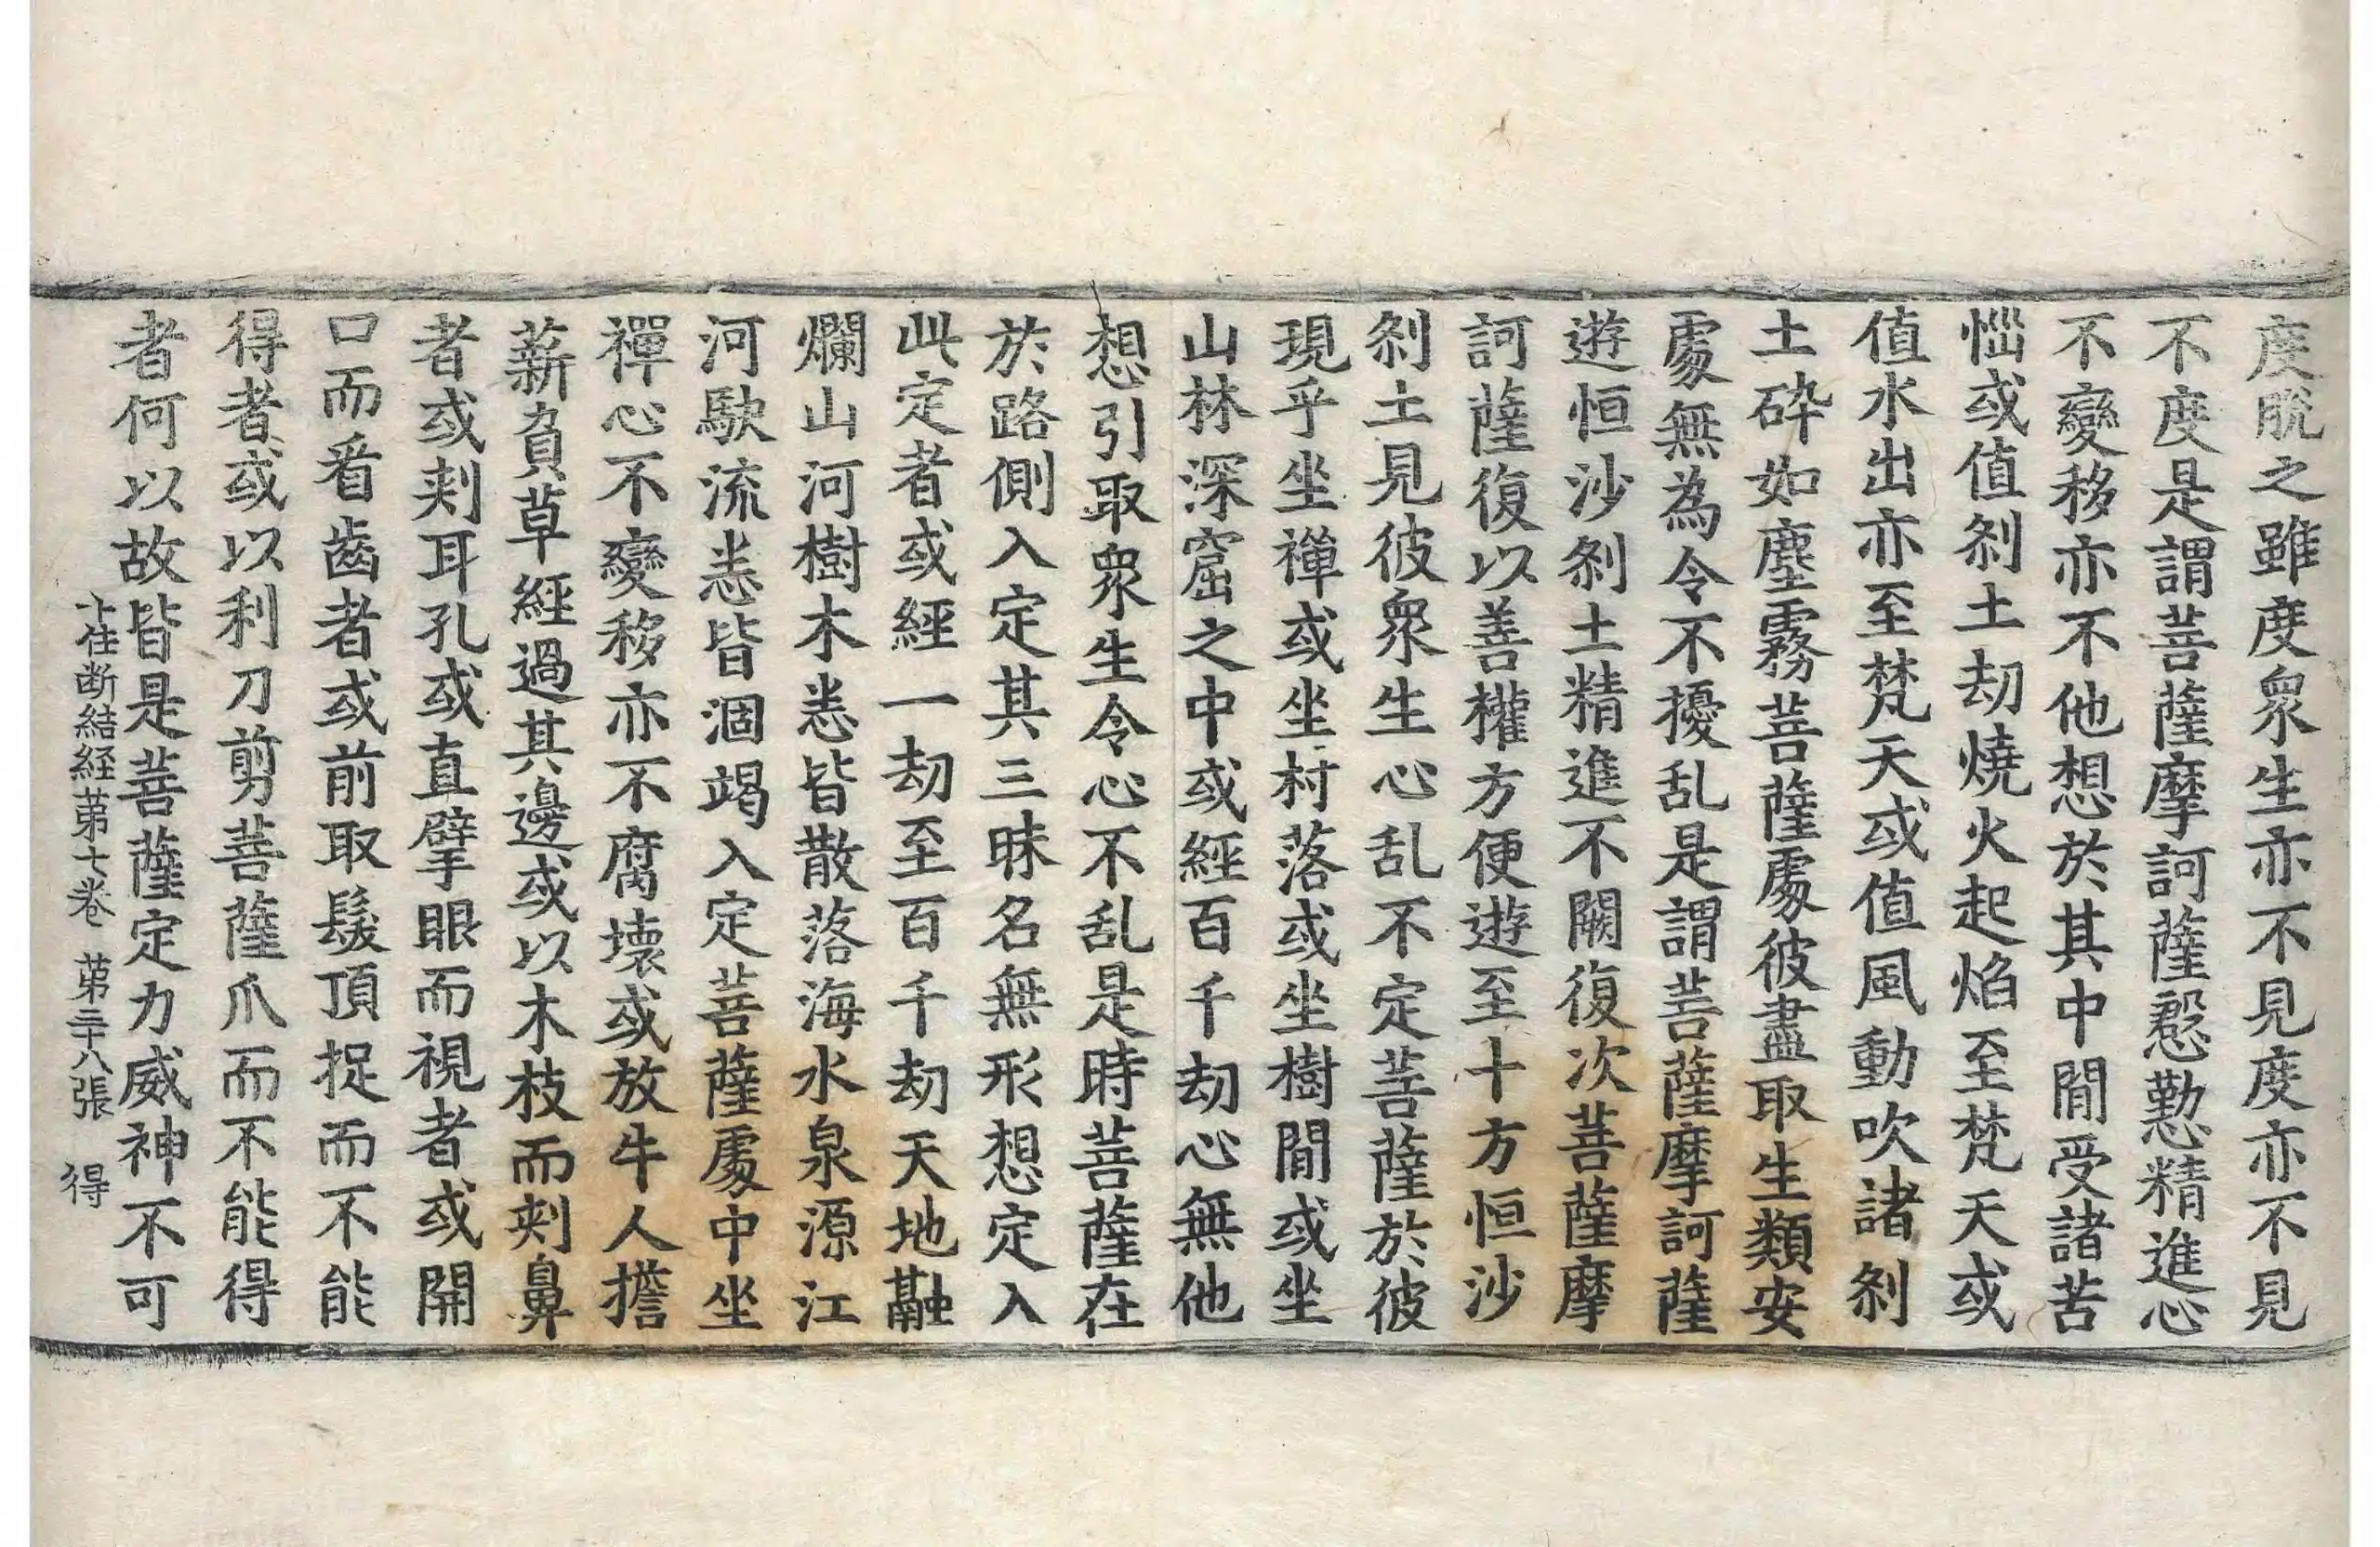 度脫之雖度衆生亦不見度亦不見
不度是謂菩薩摩訶薩慇懃精進心
不變移亦不他想於其中間受諸苦
惱或值刹土劫燒火起焰至梵天或
值水出亦至梵天或值風動吹諸刹
土碎如塵霧菩薩處彼盡取生類安
處無為令不擾乱是謂菩薩摩訶薩
遊恒沙刹土精進不闕復次菩薩摩
訶薩復以善權方便遊至十方恒沙
刹土見彼衆生心乱不定菩薩於彼
現乎坐禪或坐村落或坐樹間或坐
山林深窟之中或經百千劫心無他
想引取衆生令心不乱是時菩薩在
於路側入定其三昧名無形想定入
此定者或經一劫至百千劫天地融
爛山河樹木悉皆散落海水泉源江
河駃流悉皆涸竭入定菩薩處中坐
禪心不變移亦不腐壞或放牛人擔
薪負草經過其邊或以木枝而刾鼻
者或刾耳孔或直擘眼而視者或開
口而看齒者或前取髮頂捉而不能
得者或以利刀剪菩薩爪而不能得
者何以故皆是菩薩定力威神不可
十住断結経第七卷 第二十八張 得